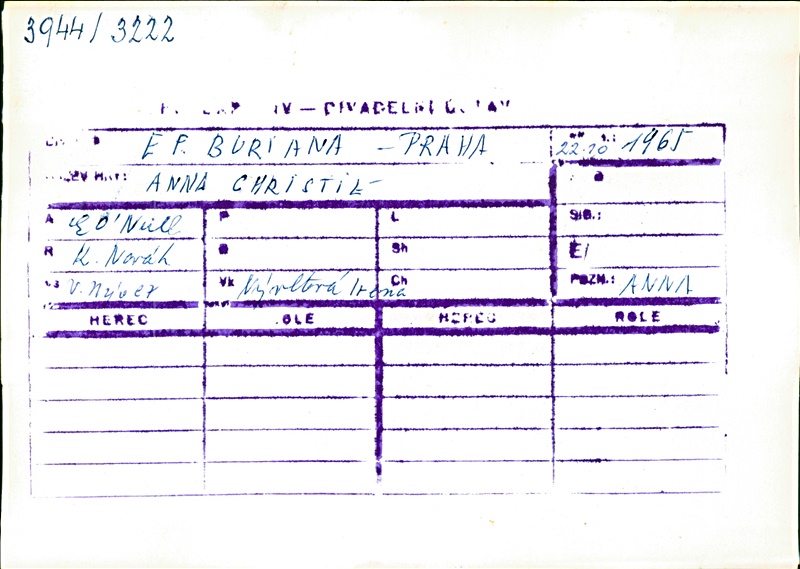 3944/3222
IV — DIVADELNÍ ÚSTAV
E F. BURIANA — PRAHA 22.10 1965
ANNA CHRISTIE
A E O'Neill P L SIG.:
R K. Novák Sh
V. Nývlt Vk Nývltová Irena Ch POZN.: ANNA
HEREC ROLE HEREC ROLE